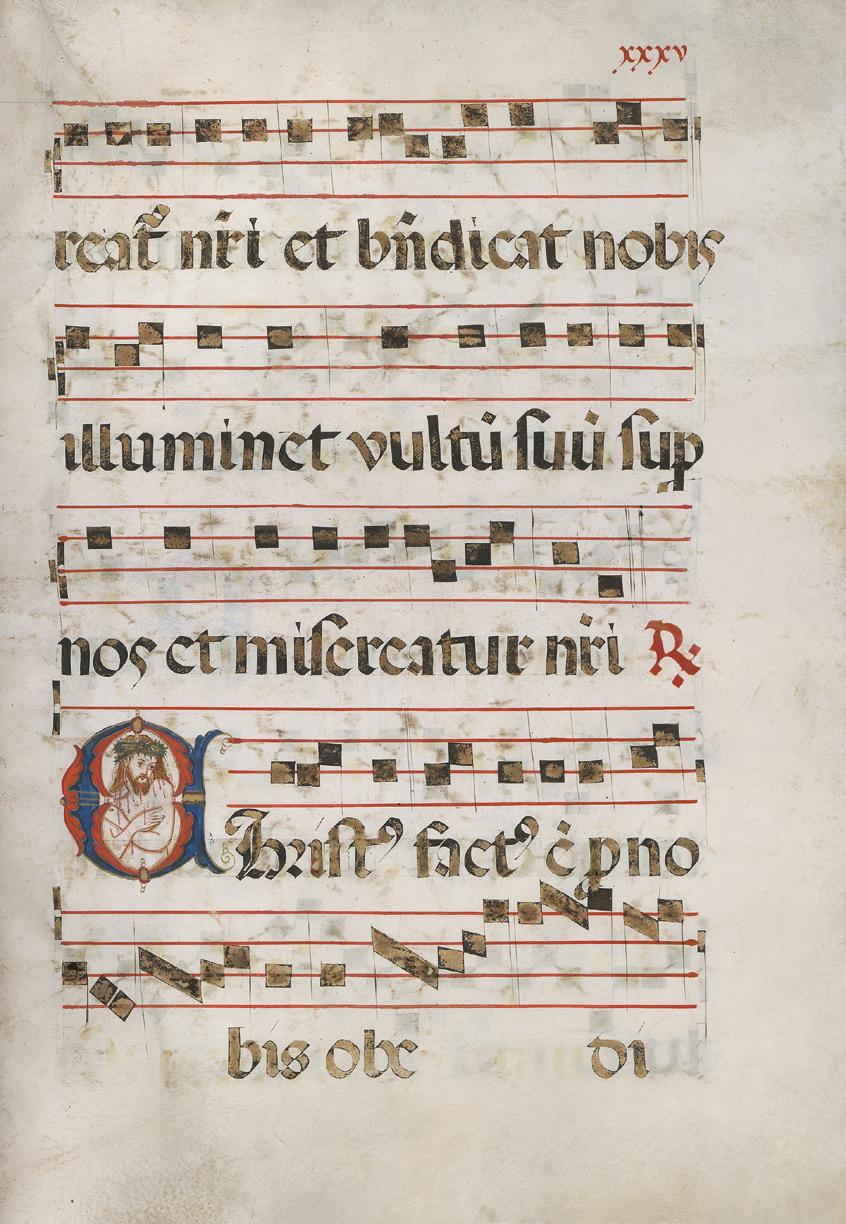 xxxv
reat̃ nr̃i et bñdicat nobis
illuminet vultū ſuū ſup
nos et miſereatur nr̃i ℟
Chriſtꝰ factꝰ ē ꝓ no
bis obe di